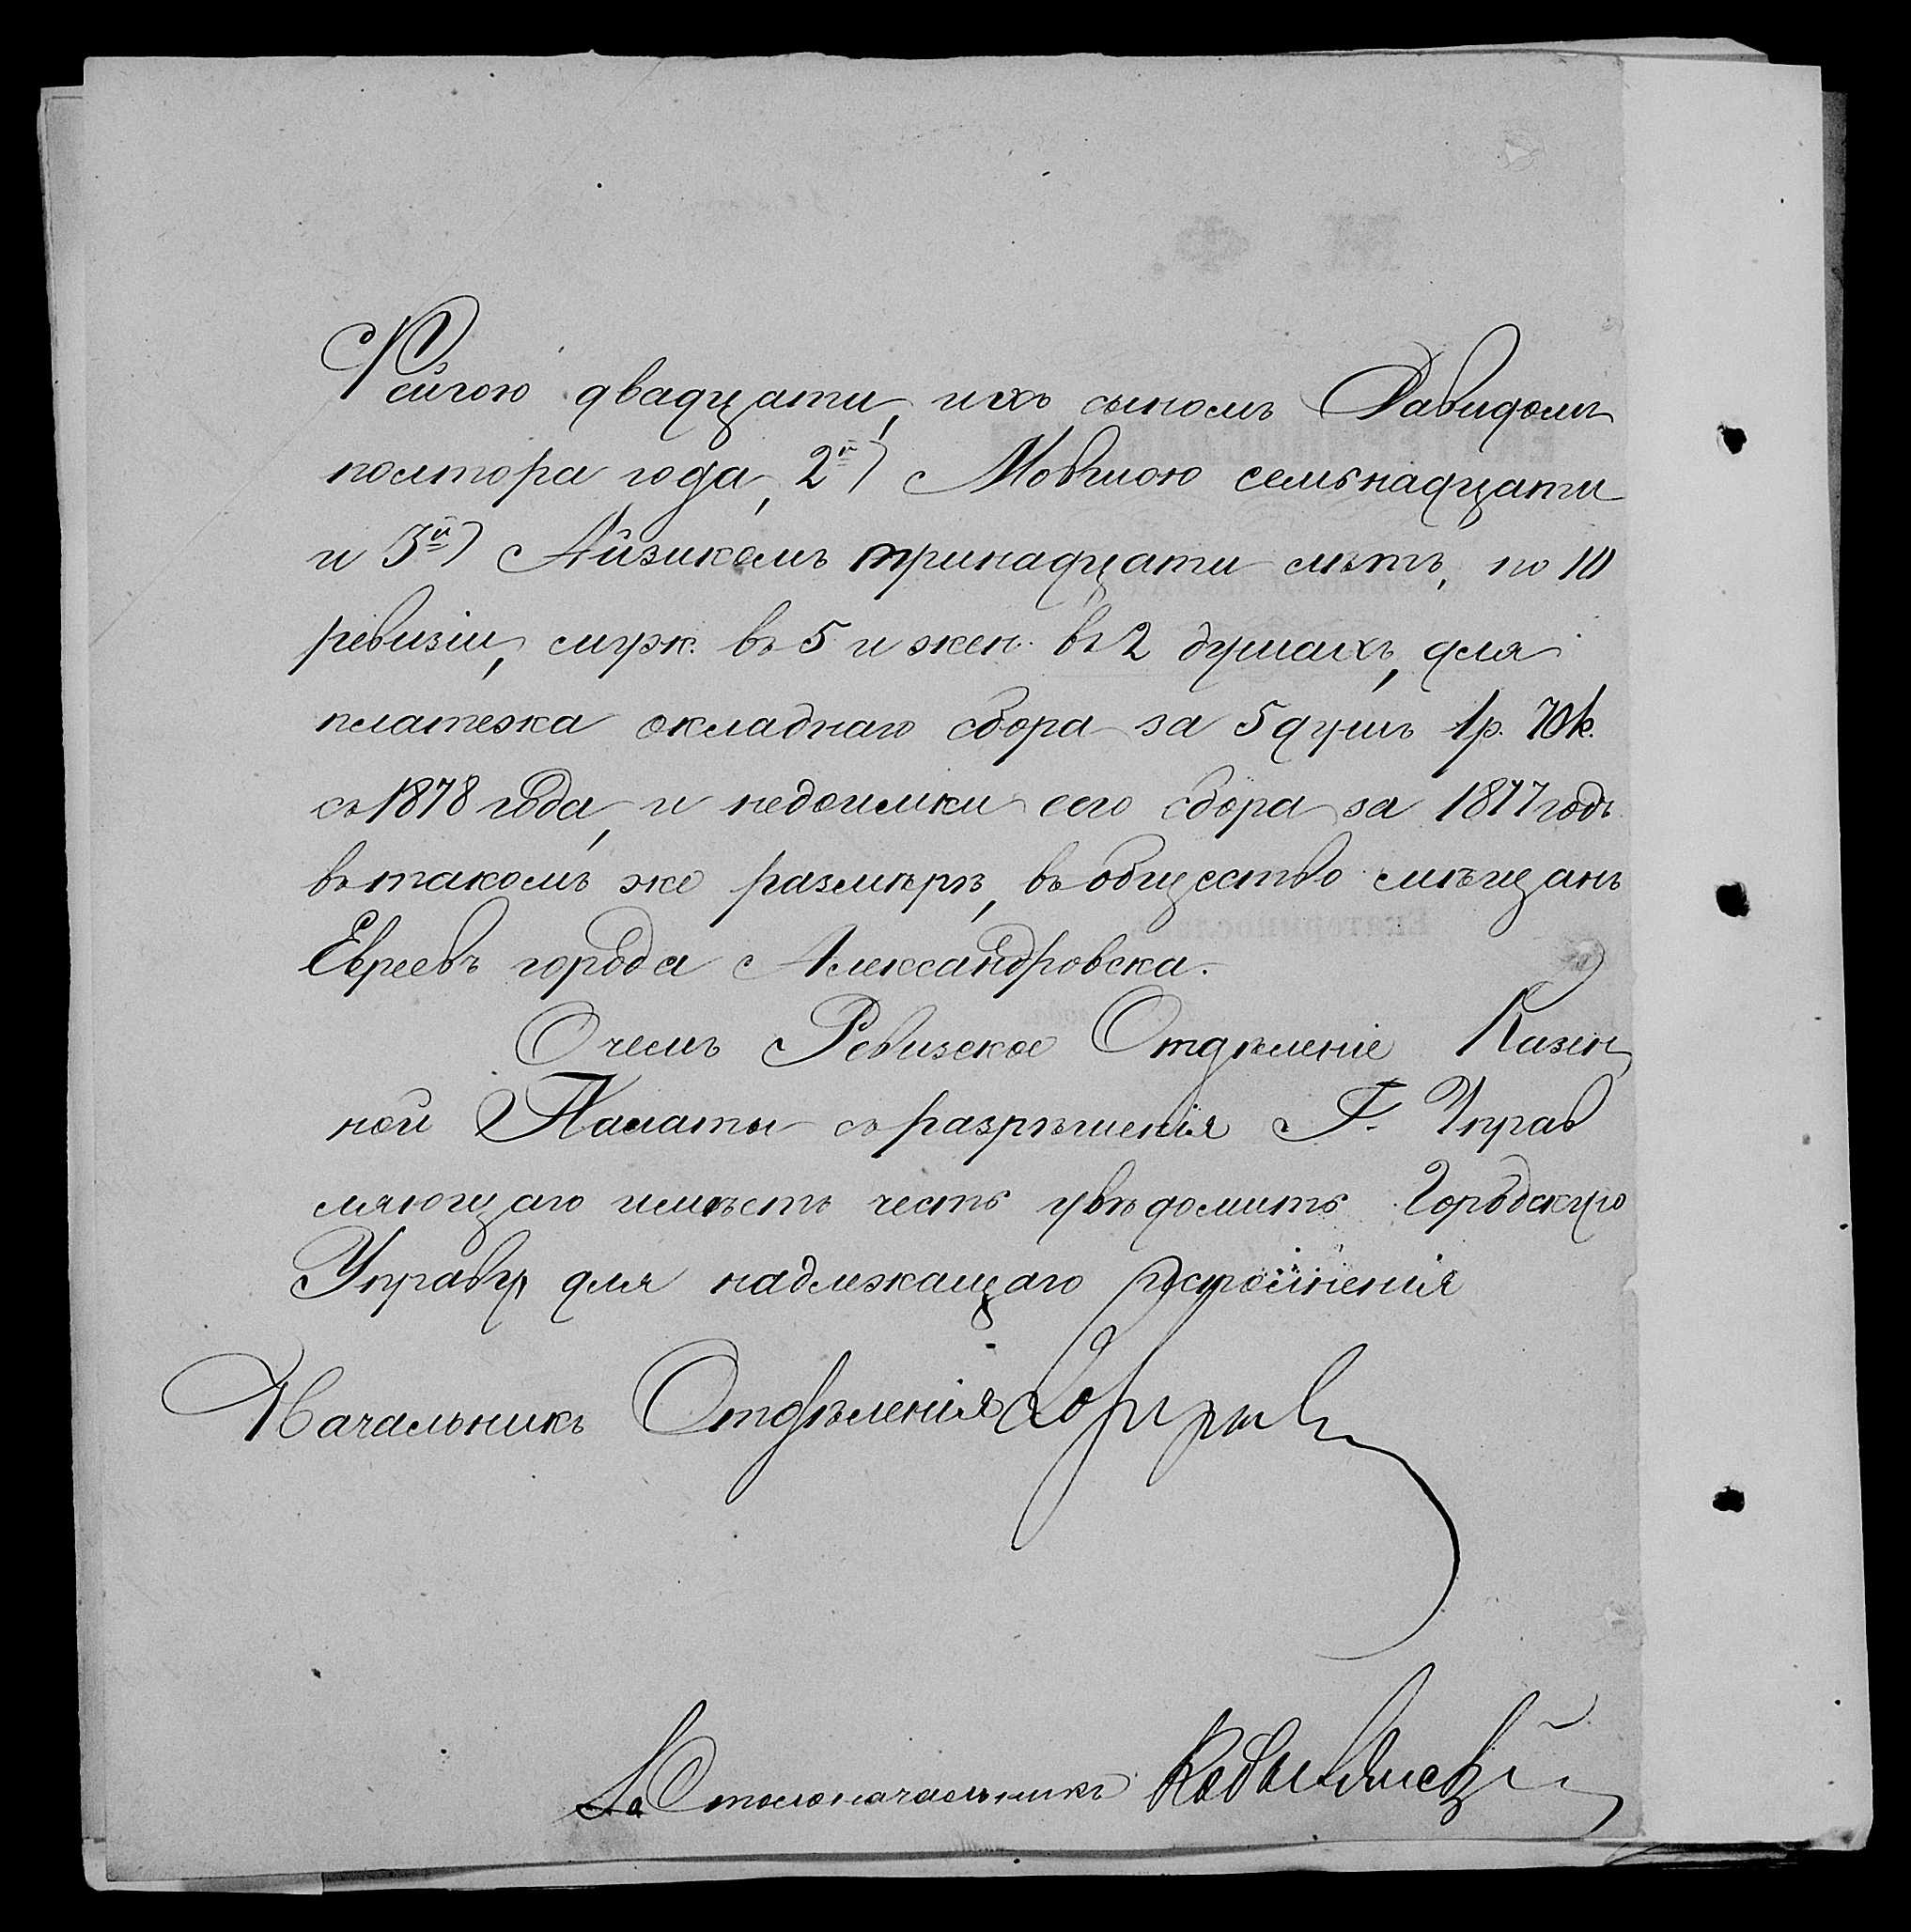 Фейгою двадцати, ихъ сыномъ Давидомъ
полтора года, 2й) Мовшою семьнадцати
и 3й) Айзикомъ тринадцати лѣтъ, по 10
ревизіи, муж. въ 5 и жен. въ 2 душахъ, для
платежа окладнаго сбора за 5 душъ 1р. 70к.
съ 1878 года, и недоимки сего сбора за 1877 годъ
въ такомъ же размѣрѣ, въ общество мѣщанъ
Евреевъ города Александровска.
О чемъ Ревизское Отдѣленіе Казен
ной Палаты съ разрѣшенія Г. Управ
ляющаго имѣетъ честь увѣдомить Городскую
Управу для надлежащаго исполненія
Начальникъ Отдѣленія
Столоначальникъ